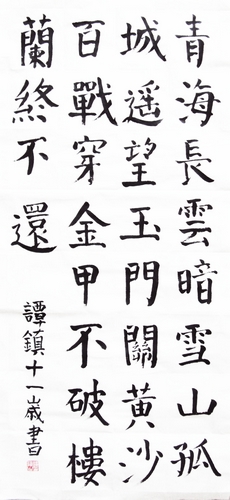 青海長雲暗雪山孤
城遥望玉門關黄沙
百戰穿金甲不破樓
蘭終不還
譚鎮十一歲書